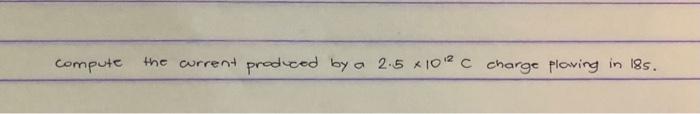 compute the current produced by a 2.5 x 10¹² C charge plowing in 18s.